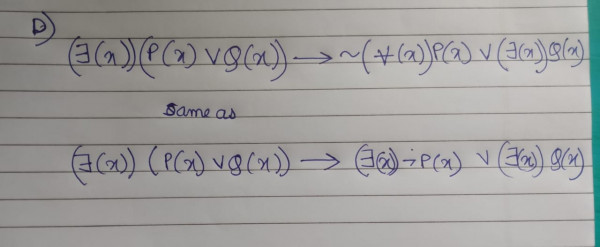 D)
(∃(x))(P(x) ∨ Q(x)) → ~(∀(x))P(x) ∨ (∃(x))Q(x)
Same as
(∃(x)) (P(x) ∨ Q(x)) → (∃(x)) ¬P(x) ∨ (∃(x)) Q(x)